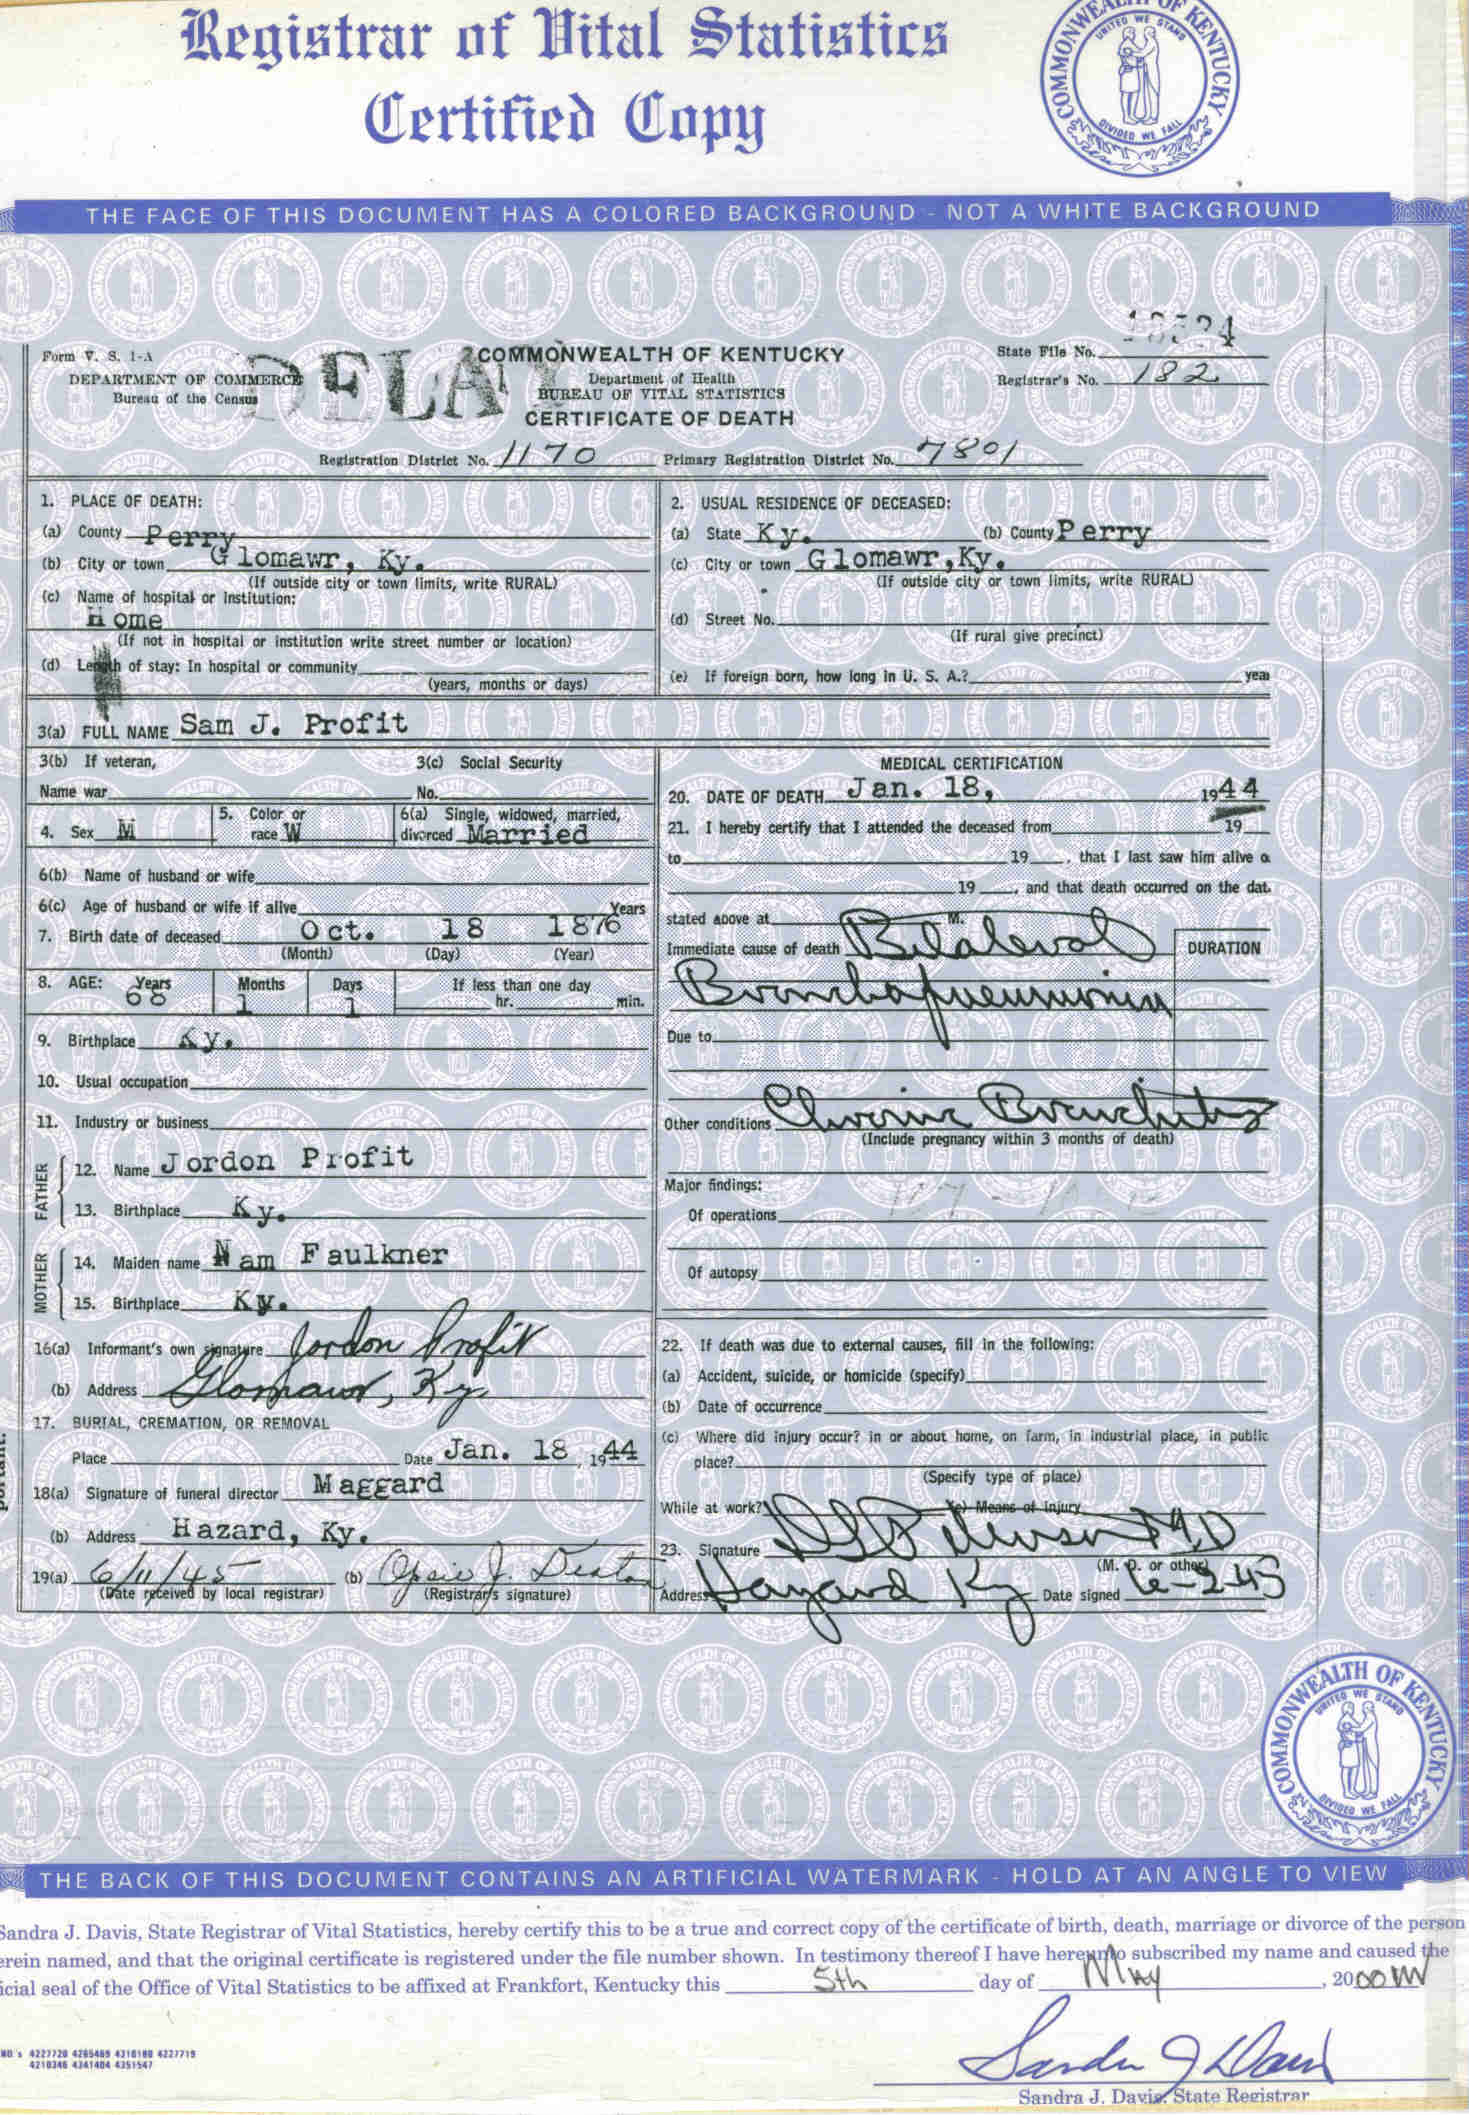 Registrar of Vital Statistics
Certified Copy
COMMONWEALTH OF KENTUCKY
UNITED WE STAND
DIVIDED WE FALL
THE FACE OF THIS DOCUMENT HAS A COLORED BACKGROUND - NOT A WHITE BACKGROUND
Form V. S. 1-A
DEPARTMENT OF COMMERCE
Bureau of the Census
DELAY
COMMONWEALTH OF KENTUCKY
Department of Health
BUREAU OF VITAL STATISTICS
CERTIFICATE OF DEATH
State File No.
Registrar's No. 182
Registration District No. 1170 Primary Registration District No. 7801
1. PLACE OF DEATH:
(a) County Perry
(b) City or town Glomawr, Ky.
(If outside city or town limits, write RURAL)
(c) Name of hospital or institution:
Home
(If not in hospital or institution write street number or location)
(d) Length of stay: In hospital or community
(years, months or days)
2. USUAL RESIDENCE OF DECEASED:
(a) State Ky. (b) County Perry
(c) City or town Glomawr, Ky.
(If outside city or town limits, write RURAL)
(d) Street No.
(If rural give precinct)
(e) If foreign born, how long in U. S. A.? year
3(a) FULL NAME Sam J. Profit
3(b) If veteran, 3(c) Social Security
Name war No.
4. Sex M 5. Color or race W 6(a) Single, widowed, married, divorced Married
6(b) Name of husband or wife
6(c) Age of husband or wife if alive Years
7. Birth date of deceased Oct. 18 1876
(Month) (Day) (Year)
8. AGE: Years Months Days If less than one day
68 1 1 hr. min.
9. Birthplace Ky.
10. Usual occupation
11. Industry or business
FATHER
12. Name Jordon Profit
13. Birthplace Ky.
MOTHER
14. Maiden name Nam Faulkner
15. Birthplace Ky.
16(a) Informant's own signature Jordon Profit
(b) Address Glomawr, Ky
17. BURIAL, CREMATION, OR REMOVAL
Place Date Jan. 18, 1944
18(a) Signature of funeral director Maggard
(b) Address Hazard, Ky.
19(a) 6/11/45 (b) Opsie J. Deaton
(Date received by local registrar) (Registrar's signature)
MEDICAL CERTIFICATION
20. DATE OF DEATH Jan. 18, 1944
21. I hereby certify that I attended the deceased from 19
to 19 , that I last saw him alive o
19 , and that death occurred on the dat
stated above at M.
Immediate cause of death Bilateral DURATION
Bronchopneumonia
Due to
Other conditions Chronic Bronchitis
(Include pregnancy within 3 months of death)
Major findings:
Of operations
Of autopsy
22. If death was due to external causes, fill in the following:
(a) Accident, suicide, or homicide (specify)
(b) Date of occurrence
(c) Where did injury occur? in or about home, on farm, in industrial place, in public
place?
(Specify type of place)
While at work? (e) Means of injury
23. Signature M.D
(M. D. or other)
Address Hazard Ky Date signed 6-2-45
COMMONWEALTH OF KENTUCKY
UNITED WE STAND
DIVIDED WE FALL
THE BACK OF THIS DOCUMENT CONTAINS AN ARTIFICIAL WATERMARK - HOLD AT AN ANGLE TO VIEW
Sandra J. Davis, State Registrar of Vital Statistics, hereby certify this to be a true and correct copy of the certificate of birth, death, marriage or divorce of the person
erein named, and that the original certificate is registered under the file number shown. In testimony thereof I have hereunto subscribed my name and caused the
icial seal of the Office of Vital Statistics to be affixed at Frankfort, Kentucky this 5th day of May , 2000
4227720 4265469 4310180 4227719
4210346 4341404 4351547
Sandra J Davis
Sandra J. Davis, State Registrar